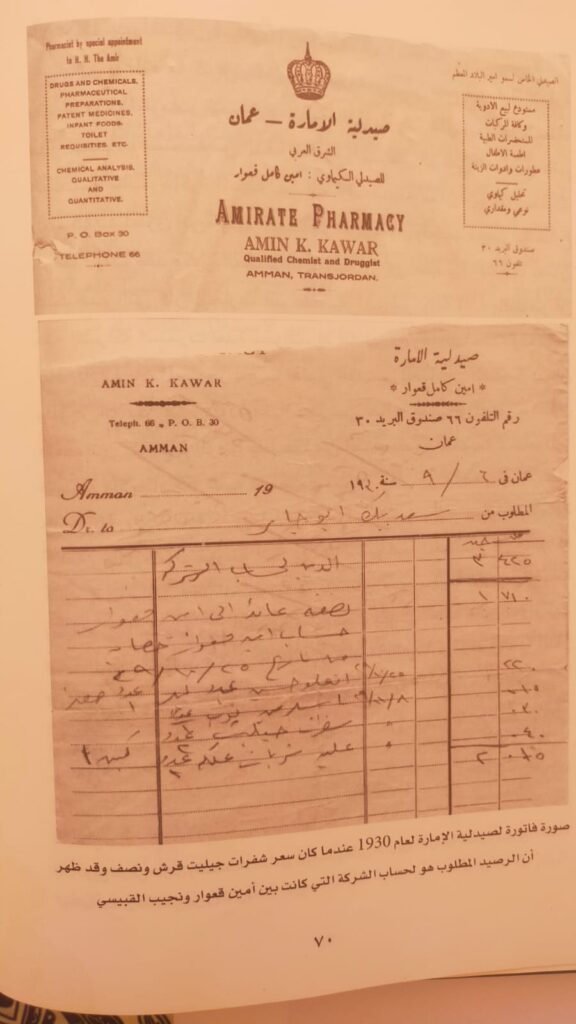 Pharmacist by special appointment
to H. H. The Amir
DRUGS AND CHEMICALS.
PHARMACEUTICAL
PREPARATIONS,
PATENT MEDICINES,
INFANT FOODS,
TOILET
REQUISITIES. ETC.
CHEMICAL ANALYSIS,
QUALITATIVE
AND
QUANTITATIVE.
P. O. Box 30
TELEPHONE 66
صيدلية الامارة – عمان
الشرق العربي
للصيدلي الكيماوي : امين كامل قعوار
AMIRATE PHARMACY
AMIN K. KAWAR
Qualified Chemist and Druggist
AMMAN, TRANSJORDAN.
الصيدلي الخاص لسمو امير البلاد المعظم
مستودع لبيع الادوية
وكافة المركبات
المستحضرات الطبية
اطعمة الاطفال
عطورات وادوات الزينة
تحليل كيماوي
نوعي ومقداري
صندوق البريد ٣٠
تلفون ٦٦
AMIN K. KAWAR
Teleph. 66 . P. O. B. 30
AMMAN
صيدلية الامارة
* امين كامل قعوار *
رقم التلفون ٦٦ صندوق البريد ٣٠
عمان
Amman 19
عمان في ٦ / ٩ سنة
Dr. to
المطلوب من سعد بك ابو جابر
٣ ٤٢٥
١ ٧١٠
نصفه عائد الى امين قعوار
حساب امين قعوار
٢٢٠
٠٣٠
٠٤٠
صورة فاتورة لصيدلية الإمارة لعام 1930 عندما كان سعر شفرات جيليت قرش ونصف وقد ظهر
أن الرصيد المطلوب هو لحساب الشركة التي كانت بين أمين قعوار ونجيب القبيسي
٧٠